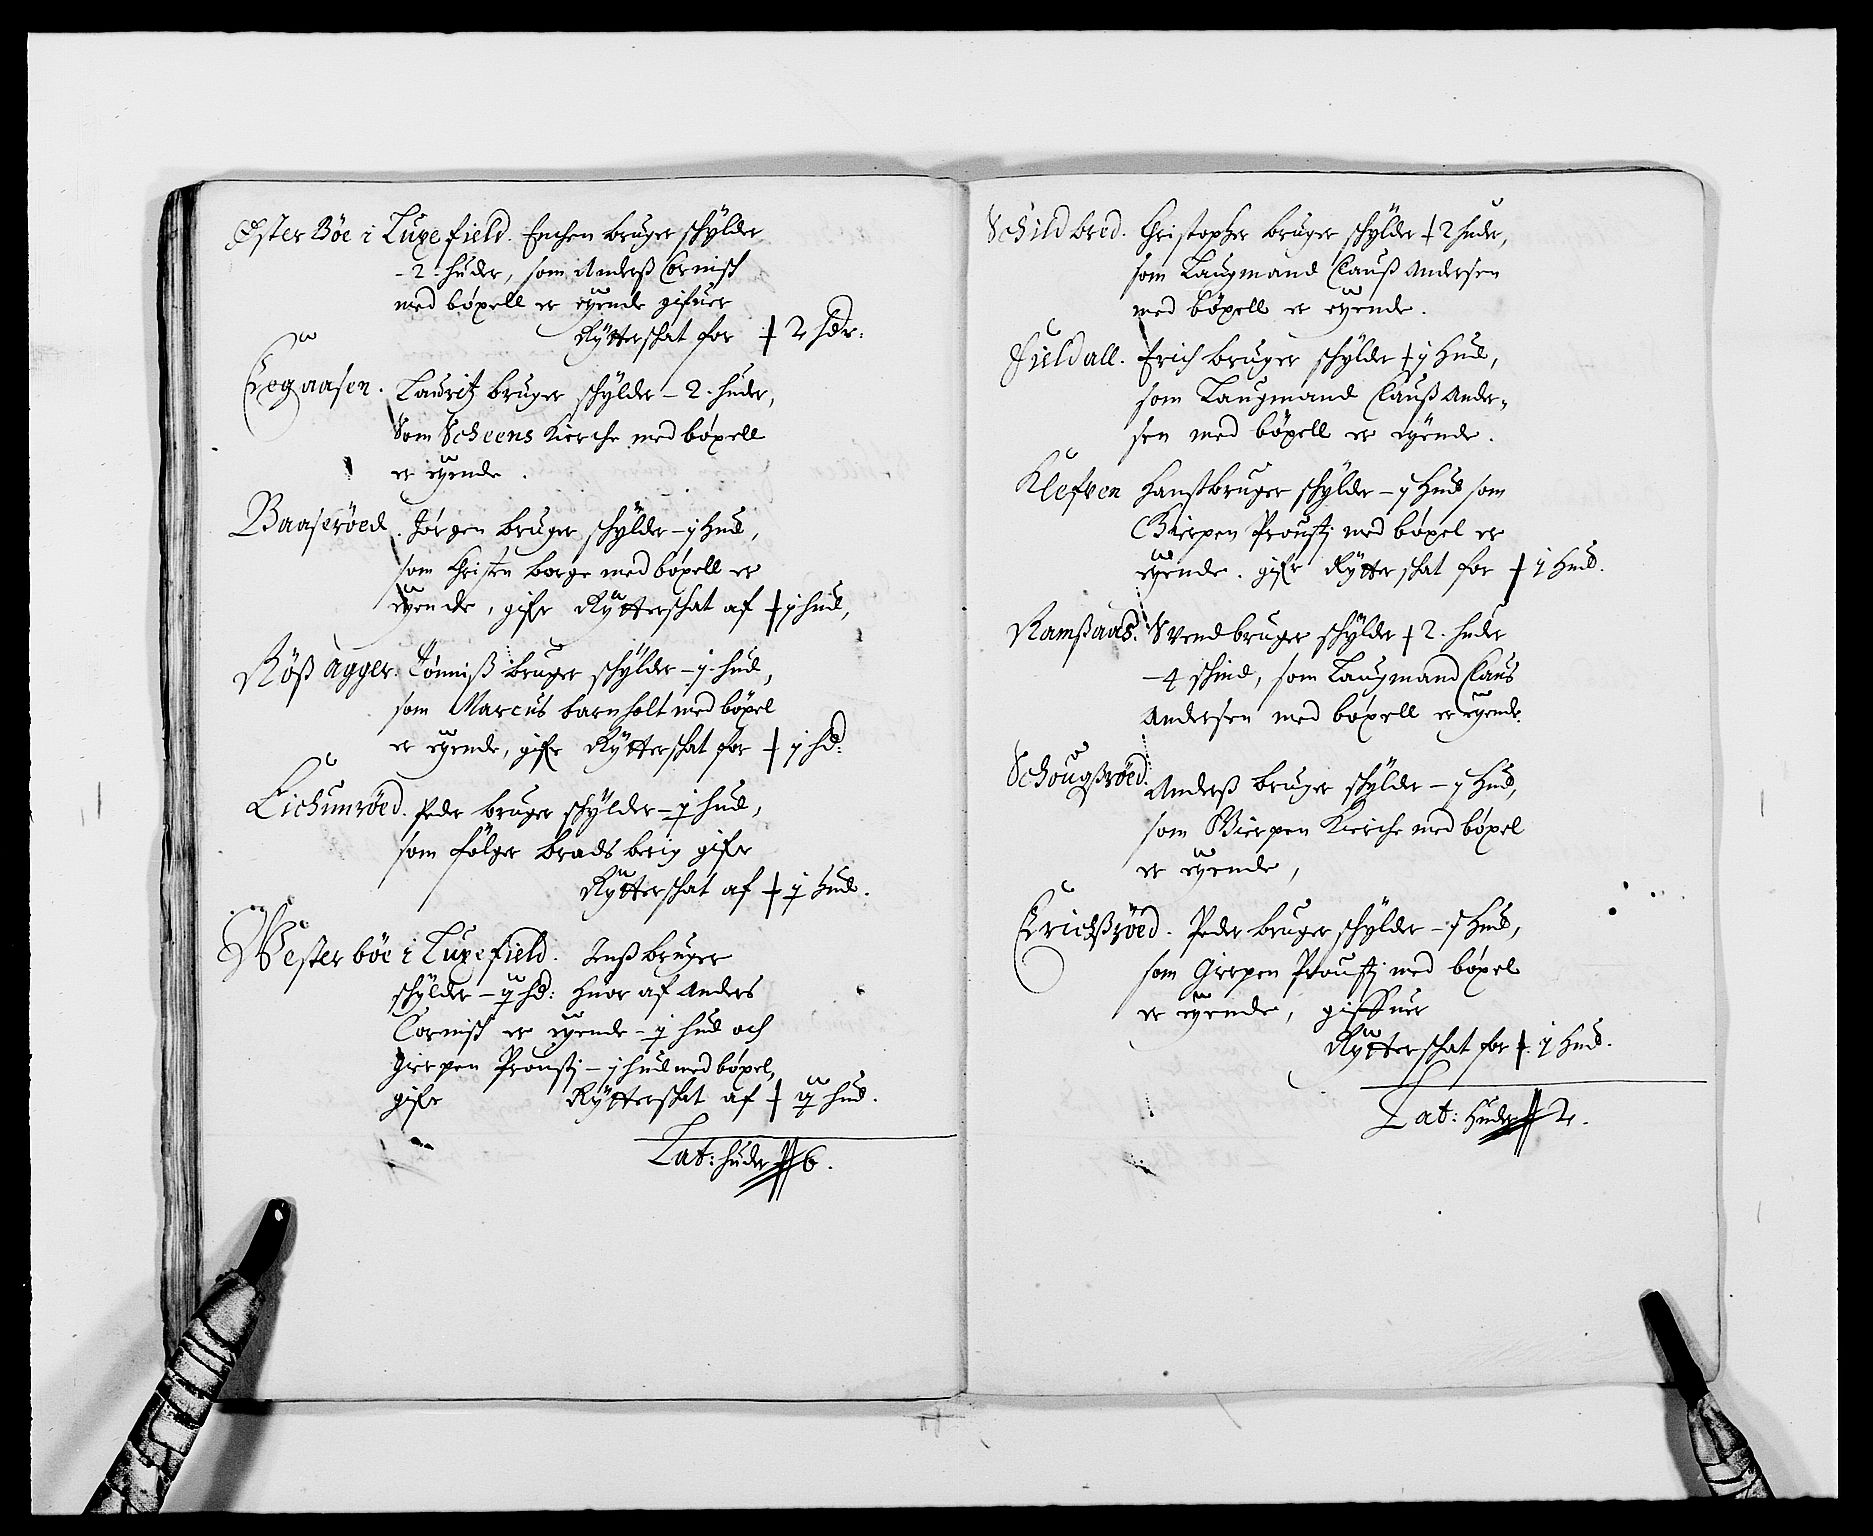 Øster Böe i Luxefield. Enchen bruger schylder
- 2. huder, som Anderß Cornisch
med böxell er eyende gifuer
Rytterschat for ⸺ 2 hdr:
Eegaasen. Lauritz bruger schylder - 2. huder,
Som Scheens Kierche med böxell
er eyende.
Baaseröed. Jörgen bruger schylder - j Hud,
som Christen Borge med böxell er
eyende, gifr Rytterschat af ⸺ j hud,
Röß Agger. Tönniß bruger schylder - j. hud,
som Marcus barnholt med böxel
er eyende, gifr Rytterschat for ⸺ j hd:
Eichunröed. Peder bruger schylder - j hud,
som fölger brads berig gifr
Rytterschat af ⸺ j Hud.
Wester böe i Luxefield. Jenß bruger
schylder - ij hd: Huor af Anders
Cornisch er eyende - j hud och
Gierpen Proustj - j hud med böxel,
gifr Rytterschat af ⸺ ij hud.
Lat: huder 6.
Schildbred. Christopher bruger schylder 2 huder,
som Laugmand Clauß Andersen
med böxell er eyende.
Fieldall. Erich bruger schylder j Hud,
som Laugmand Clauß Ander-
sen med böxell er eyende.
Klefven Hanß bruger schylder - j Hud som
Gierpen Proustj med böxel er
eyende. gifr Rytterschat for ⸺ j Hud.
Ramßaas. Svend bruger schylder 2. huder
- 4 schind, som Laugmand Claus
Andersen med böxell er eyende.
Schougßröed. Anderß bruger schylder - j Hud,
som Gierpen Kierche med böxel
er eyende,
Erichßröed. Peder bruger schylder - j Hud,
som Gierpen Proustj med böxel
er eyende, giffuer
Rytterschat for ⸺ j Hud.
Lat: Huder 2.